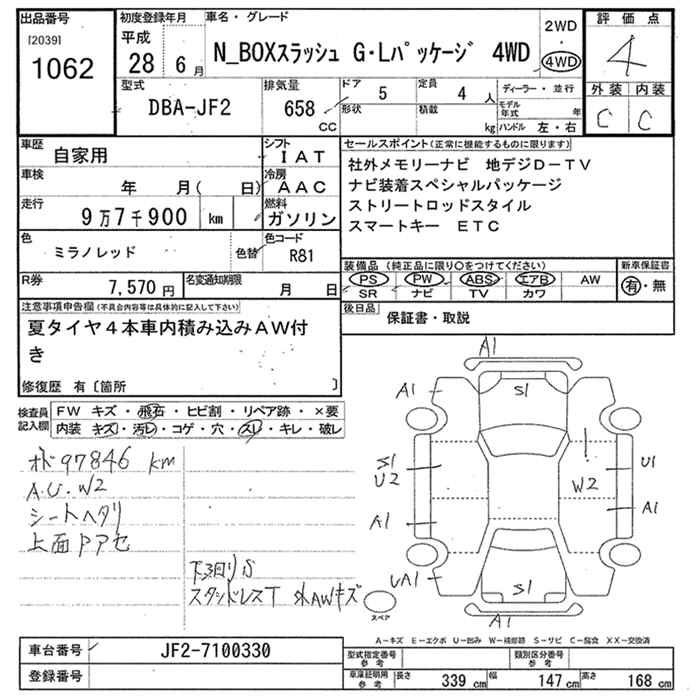 出品番号 初度登録年月 車名・グレード 2WD 評価点
[2039] 平成
1062 28 6月 N_BOXスラッシュ G・Lパッケージ 4WD 4WD 4
型式 排気量 ドア 5 定員 4 人 ディーラー・並行 外装 内装
DBA-JF2 658 CC 形状 積載 kg モデル年式 年 C C
ハンドル 左・右
車歴 自家用 シフト IAT セールスポイント(正常に機能するものに限ります)
車検 年 月( 日) 冷房 AAC 社外メモリーナビ 地デジD-TV
走行 9万7千900 km 燃料 ガソリン ナビ装着スペシャルパッケージ
ストリートロッドスタイル
色 ミラノレッド 色替 色コード R81 スマートキー ETC
R券 7,570円 名変通知期限 月 日 装備品(純正品に限り○をつけてください) 新車保証書
PS PW ABS エアB AW 有・無
SR ナビ TV カワ
注意事項申告欄(不具合内容等は具体的に記入して下さい) 後日品 保証書・取説
夏タイヤ4本車内積み込みAW付
き
修復歴 有〔箇所 〕
検査員記入欄 FW キズ・飛石・ヒビ割・リペア跡・×要
内装 キズ・汚レ・コゲ・穴・スレ・キレ・破レ
A1
A1 S1
オド97846 km S1 U2 W2 U1
A.U.W2
シートヘタリ A1 A1
上面Pアセ
下廻りS UA1 S1
スタッドレスT 外AWキズ スペア A1
A-キズ E-エクボ U-凹み W-補修跡 S-サビ C-腐食 XX-交換済
車台番号 JF2-7100330 型式指定番号 参考 類別区分番号 参考
登録番号 車庫証明用 参考 長さ 339 cm 幅 147 cm 高さ 168 cm